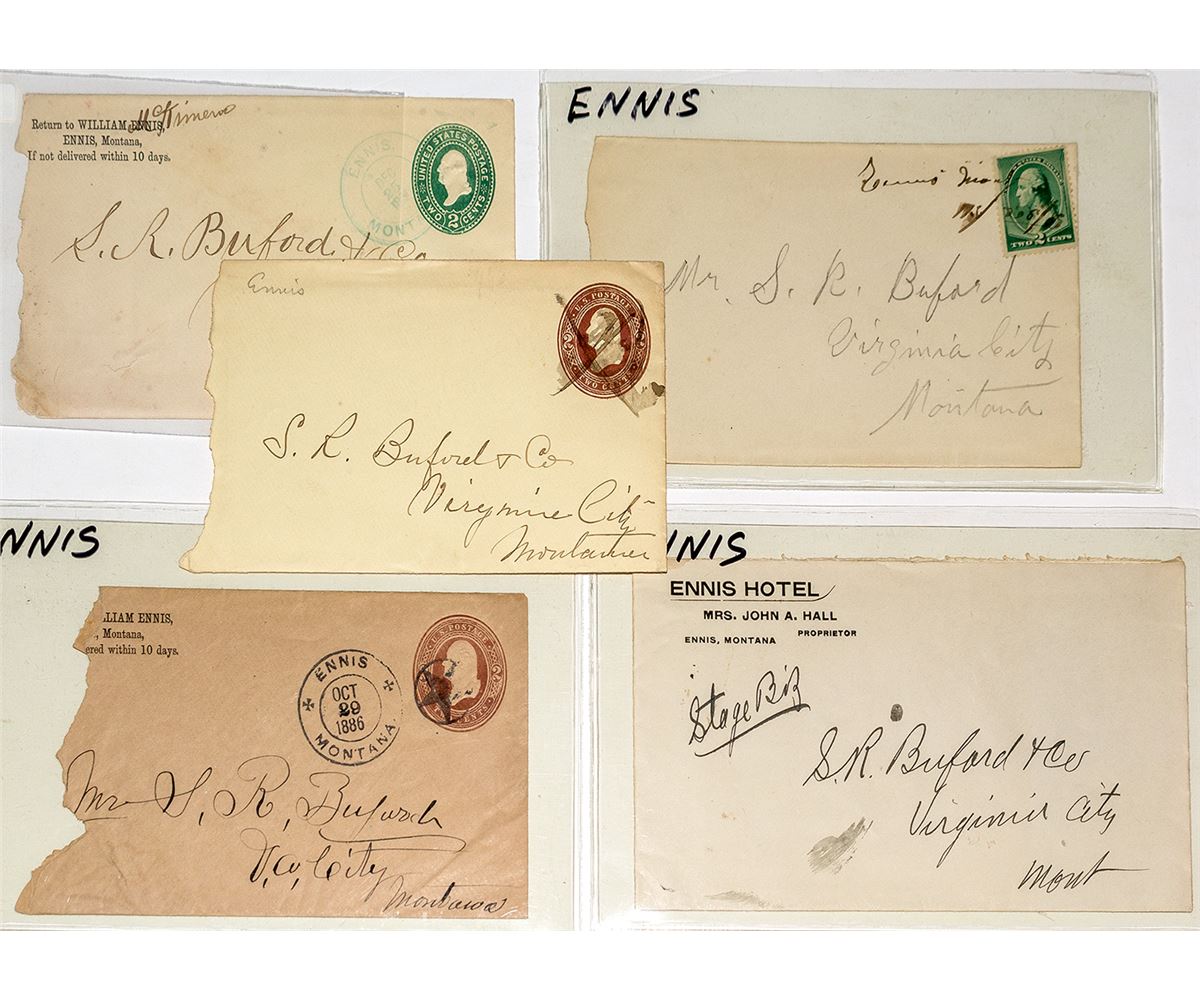 Return to WILLIAM ENNIS,
ENNIS, Montana,
If not delivered within 10 days.
ENNIS,
MONT
UNITED STATES POSTAGE
TWO 2 CENTS
S. R. Buford & Co
ENNIS
Ennis
TWO 2 CENTS
Mr. S. R. Buford
Virginia City
Montana
Ennis
U.S. POSTAGE
2 2
TWO CENTS
S. R. Buford & Co
Virginia City
Montana
NNIS
LLIAM ENNIS,
, Montana,
ered within 10 days.
ENNIS
OCT
29
1886
MONTANA
U.S. POSTAGE
2
TWO CENTS
Mr S, R, Buford
V,a, City
Montana
NNIS
ENNIS HOTEL
MRS. JOHN A. HALL
PROPRIETOR
ENNIS, MONTANA
Stage Biz
S. R. Buford & Co
Virginia City
Mont